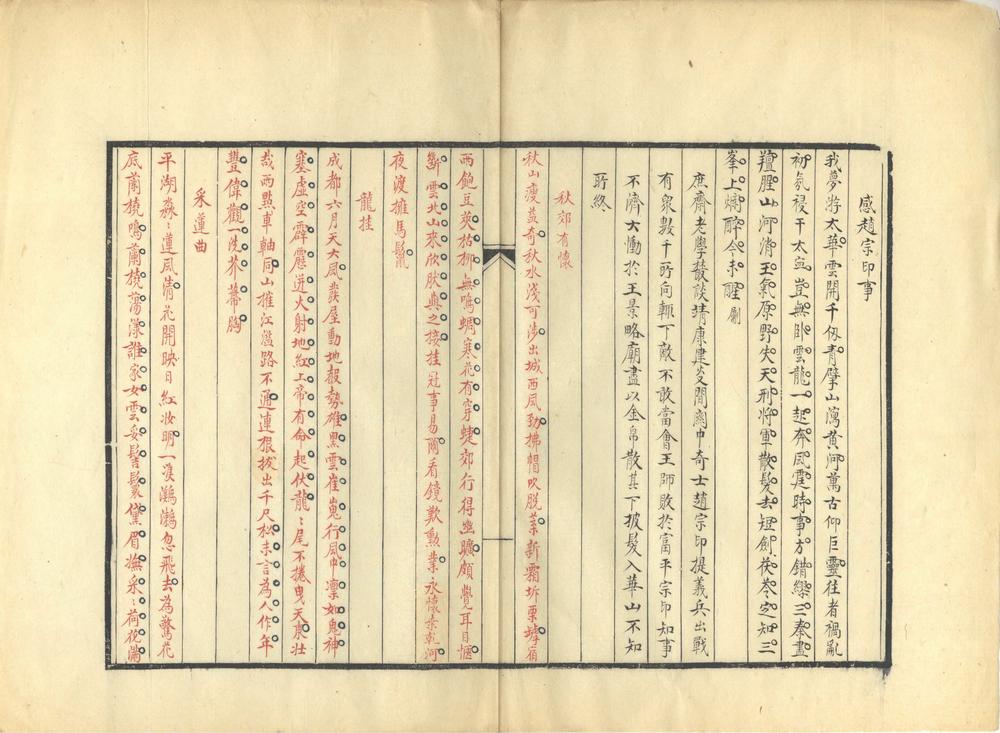 感趙宗印事
我夢游太華雲開千仭青擘山瀉黄河萬古仰巨靈往者禍亂
初氛祲干太寍豈無卧雲龍一起奔風霆時事方錯繆三奉盡
羶腥山河消王氣原野失天刑將軍散髮去短劍茯苓定知三
峯上爛醉今未醒 劇
庶齋老學藂談靖康建炎間關中奇士趙宗印提義兵出戰
有衆數千所向輒下敵不敢當會王師敗於富平宗印知事
不濟大慟於王景略廟盡以金帛散其下披髮入華山不知
所終
秋郊有懷
秋山瘦益奇秋水淺可涉出城西風勁拂帽吹脱葉新霜坼栗罅宿
雨飽豆莢枯柳無鳴蜩寒花有穿蜨郊行得幽曠頗覺耳目愜
斷雲北山來欣肰與之接挂冠事易爾看鏡歎勲業永懷桑乾河
夜渡擁馬鬣
龍挂
成都六月天大風發屋動地聲勢雄黑雲崔嵬行風中凛如鬼神
塞虛空霹靂迸火射地紅上帝有命起伏龍〻尾不捲曳天東壯
哉雨點車軸同山摧江溢路不通連根拔出千尺松未言為人作年
豐偉觀一洗芥蔕胸
采蓮曲
平湖淼〻蓮風清花開映日紅妝明一雙鸂鶒忽飛去為驚花
底蘭橈鳴蘭橈蕩漾誰家女雲妥髻鬟黛眉嫵采〻荷花滿